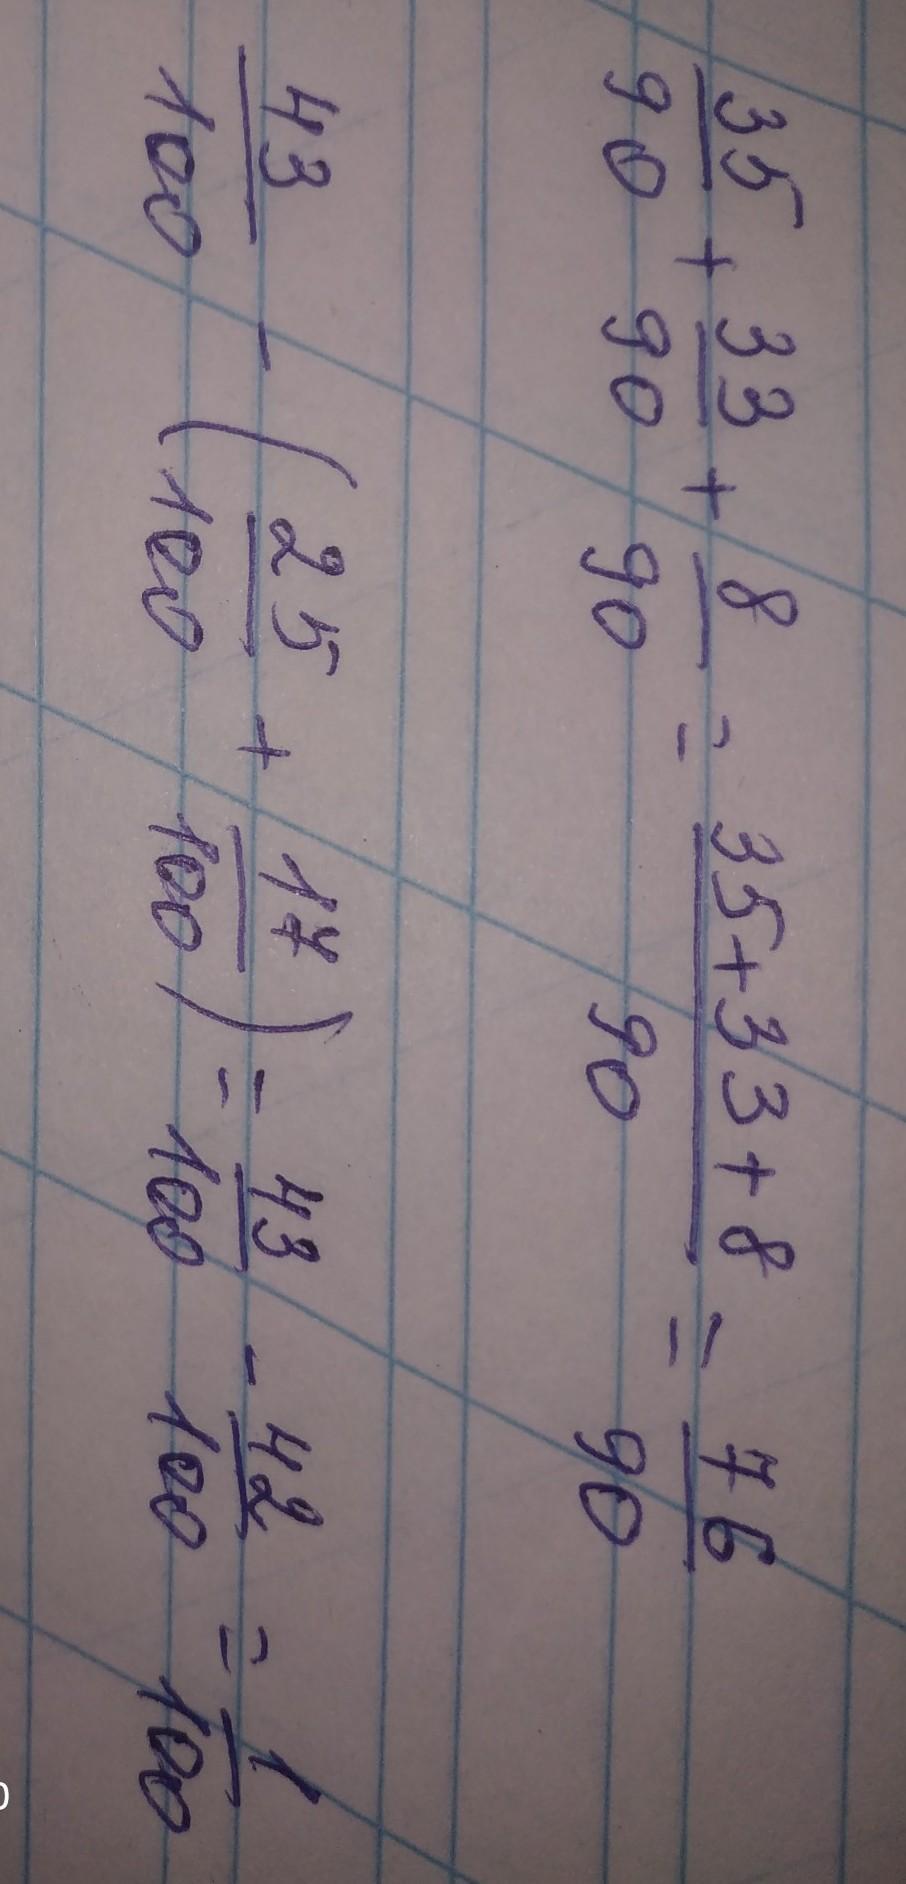 35/90 + 33/90 + 8/90 = (35+33+8)/90 = 76/90
43/100 - (25/100 + 17/100) = 43/100 - 42/100 = 1/100